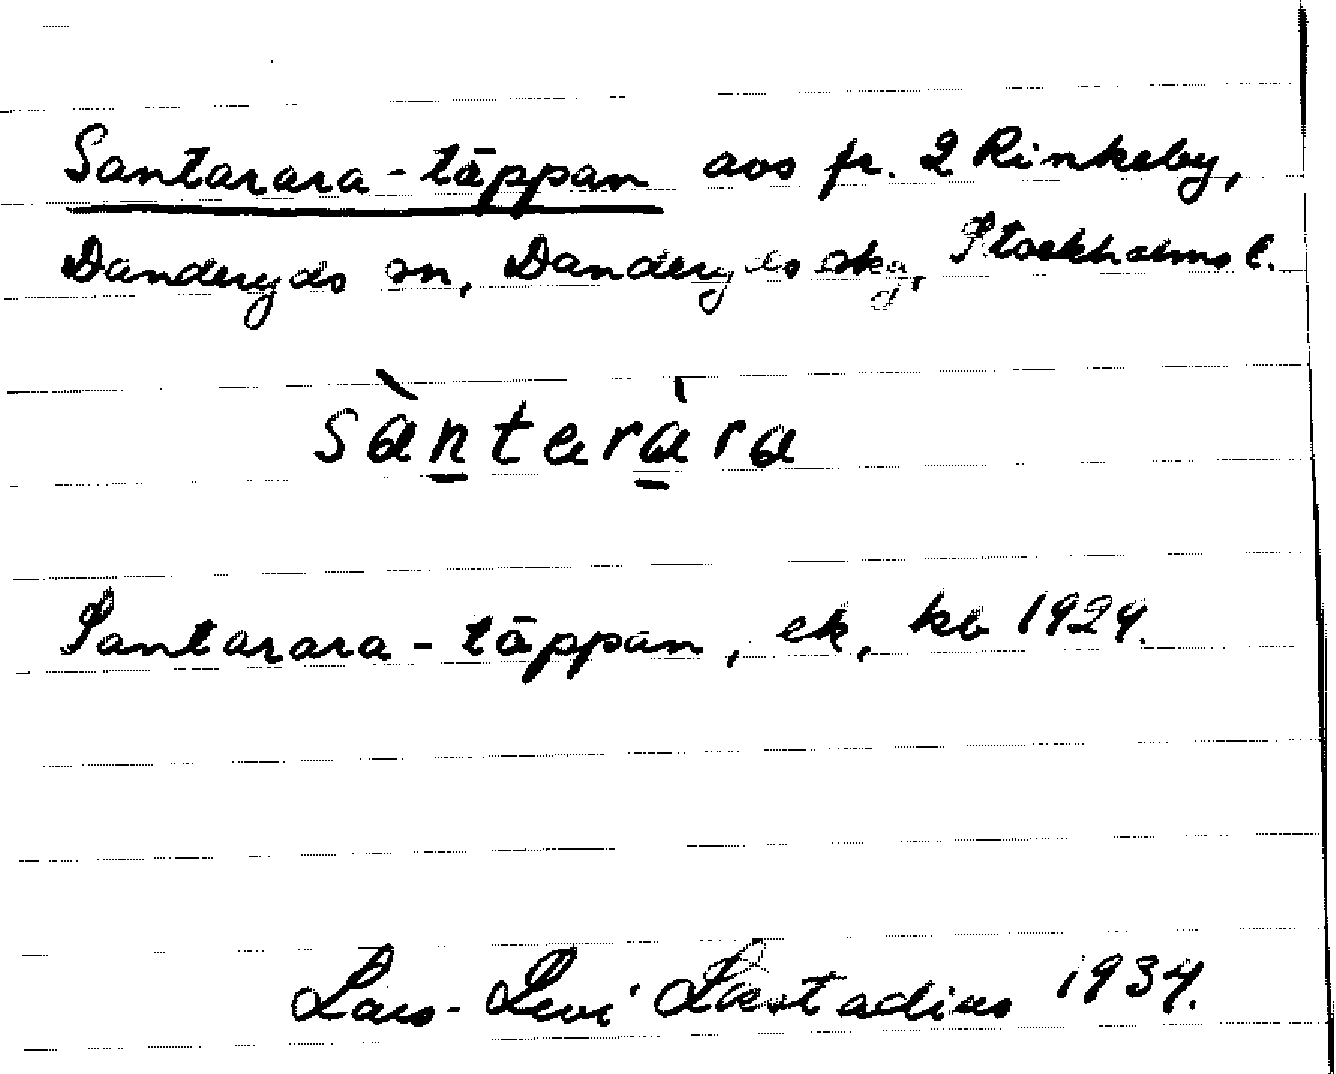 Santarara-täppan avs fr. 2 Rinkeby,
Danderyds sn, Danderyds skg, Stockholms l.
sàntaràra
Santarara-täppan, ek, kb 1924.
Lars-Levi Læstadius 1934.